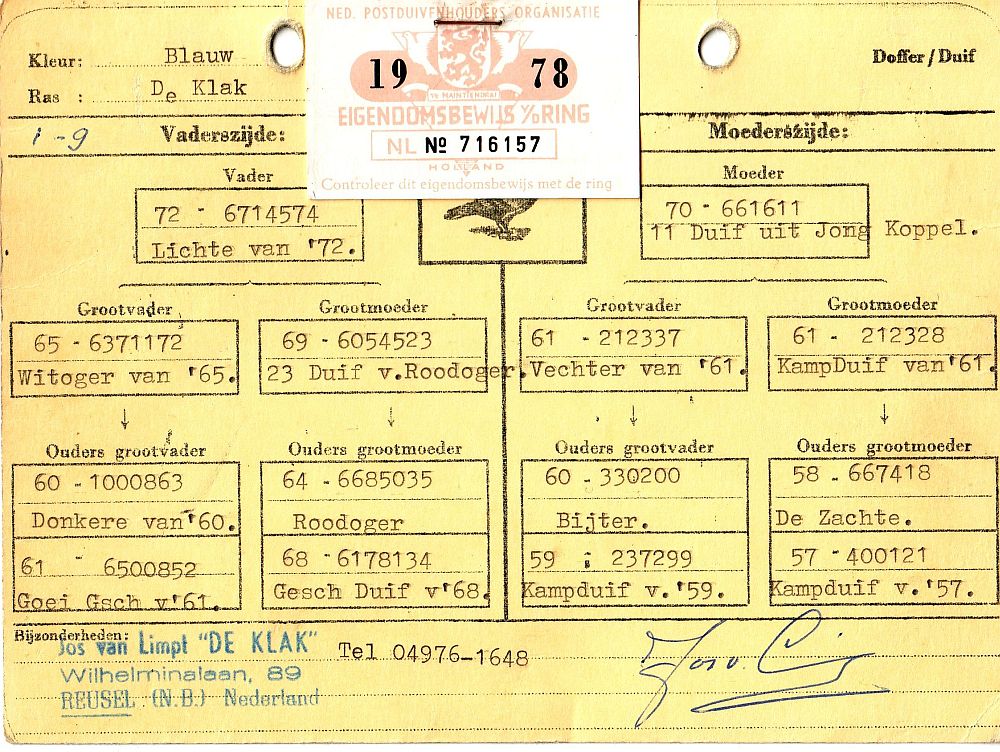 NED. POSTDUIVENHOUDERS ORGANISATIE
19 78
JE MAINTIENDRAI
EIGENDOMSBEWIJS V/D RING
NL № 716157
HOLLAND
Controleer dit eigendomsbewijs met de ring
Kleur: Blauw
Doffer / Duif
Ras : De Klak
1 - 9
Vaderszijde:
Moederszijde:
Vader
72 - 6714574
Lichte van '72.
Moeder
70 - 661611
11 Duif uit Jong Koppel.
Grootvader
65 - 6371172
Witoger van '65.
Grootmoeder
69 - 6054523
23 Duif v.Roodoger.
Grootvader
61 - 212337
Vechter van '61.
Grootmoeder
61 - 212328
KampDuif van '61.
Ouders grootvader
60 - 1000863
Donkere van '60.
61 - 6500852
Goei Gsch v '61.
Ouders grootmoeder
64 - 6685035
Roodoger
68 - 6178134
Gesch Duif v '68.
Ouders grootvader
60 - 330200
Bijter.
59 ; 237299
Kampduif v. '59.
Ouders grootmoeder
58 - 667418
De Zachte.
57 - 400121
Kampduif v. '57.
Bijzonderheden:
Jos van Limpt "DE KLAK"
Wilhelminalaan, 89
REUSEL (N.B.) Nederland
Tel 04976-1648